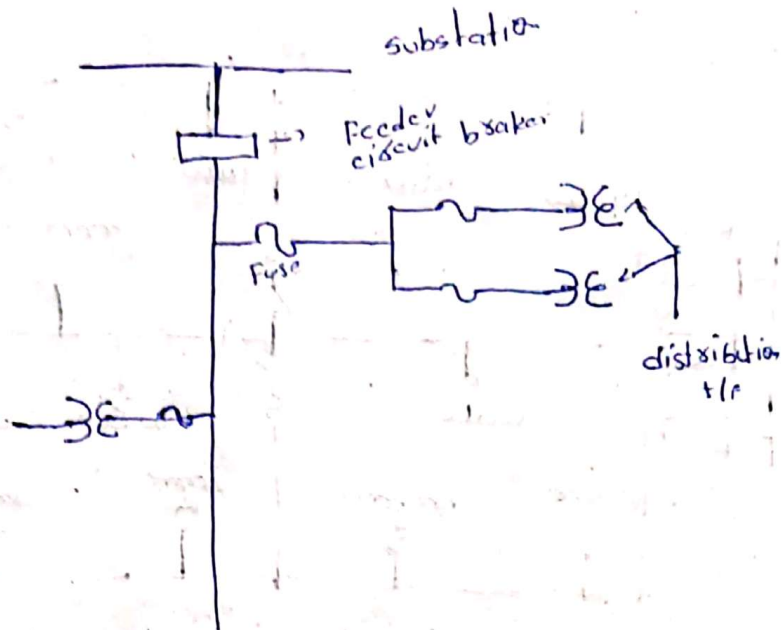 substation
Feeder
circuit braker
Fuse
distribution
t/r